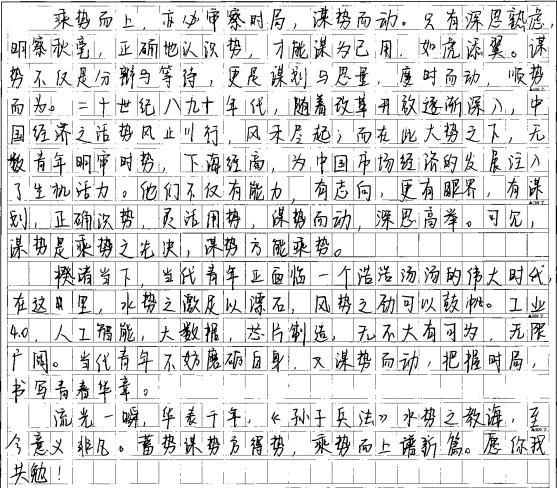 乘势而上，亦必审察时局，谋势而动。只有深思熟虑，
明察秋毫，正确地认识势，才能谋为己用，如虎添翼。谋
势不仅是分辨与等待，更是谋划与思量，度时而动，顺势
而为。二十世纪八九十年代，随着改革开放逐渐深入，中
国经济之活势风业川行，风禾尽起；而在此大势之下，无
数青年明审时势，下海经商，为中国市场经济的发展注入
了生机活力。他们不仅有能力，有志向，更有眼界，有谋
划，正确识势，灵活用势，谋势而动，深思高举。可见，
谋势是乘势之先决，谋势方能乘势。
揆诸当下，当代青年正面临一个浩浩汤汤的伟大时代，
在这里，水势之激足以漂石，风势之劲可以鼓帆。工业
4.0，人工智能，大数据，芯片制造，无不大有可为，无限
广阔。当代青年不妨磨砺自身，又谋势而动，把握时局，
书写青春华章。
流光一瞬，华表千年，《孙子兵法》水势之教诲，至
今意义非凡。蓄势谋势方得势，乘势而上谱新篇。愿你我
共勉！